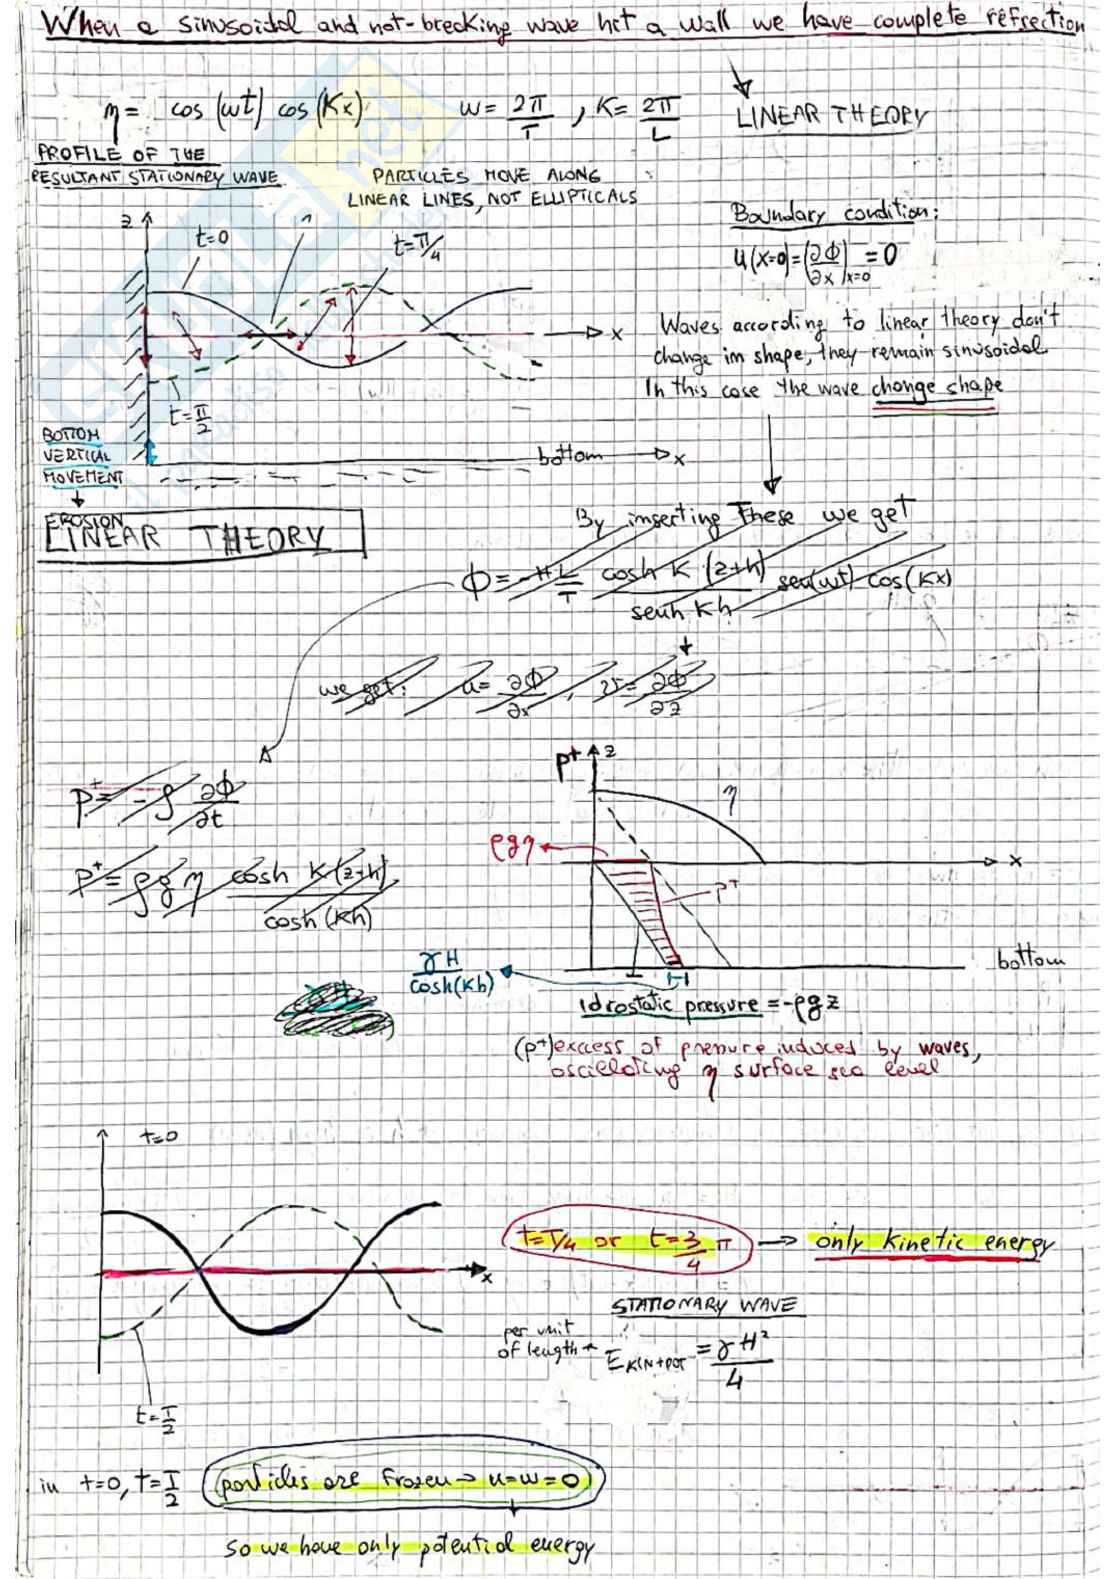 When a sinusoidal and not-breaking wave hit a wall we have complete refrection
η = cos (ωt) cos (Kx) ω = 2π/T , K = 2π/L LINEAR THEORY
PROFILE OF THE
RESULTANT STATIONARY WAVE
PARTICLES MOVE ALONG
LINEAR LINES, NOT ELLIPTICALS
Boundary condition:
u(x=0) = (∂Φ/∂x)x=0 = 0
z
t=0
t=π/4
x
t=π/2
Waves according to linear theory don't
change im shape, they remain sinusoidal
In this case the wave change shape
BOTTOM
VERTICAL
MOVEMENT
bottom x
EROSION
LINEAR THEORY
By inserting these we get
Φ = -HL/T cosh K (z+h)/senh Kh sen(ωt) cos(Kx)
we get: u = ∂Φ/∂x , v = ∂Φ/∂z
p⁺ = -ρ ∂Φ/∂t
p⁺ = ρgη cosh K(z+h)/cosh(Kh)
p⁺ z
η
ρgη
x
p⁺
bottom
γH/cosh(Kh)
Idrostatic pressure = -ρgz
(p⁺) excess of pressure induced by waves,
oscillating η surface sea level
t=0
x
t=T/2
t=T/4 or t=3/4 π → only kinetic energy
STATIONARY WAVE
per unit
of length
E KIN+POT = γH²/4
in t=0, t=T/2 particles are frozen → u=w=0
so we have only potential energy